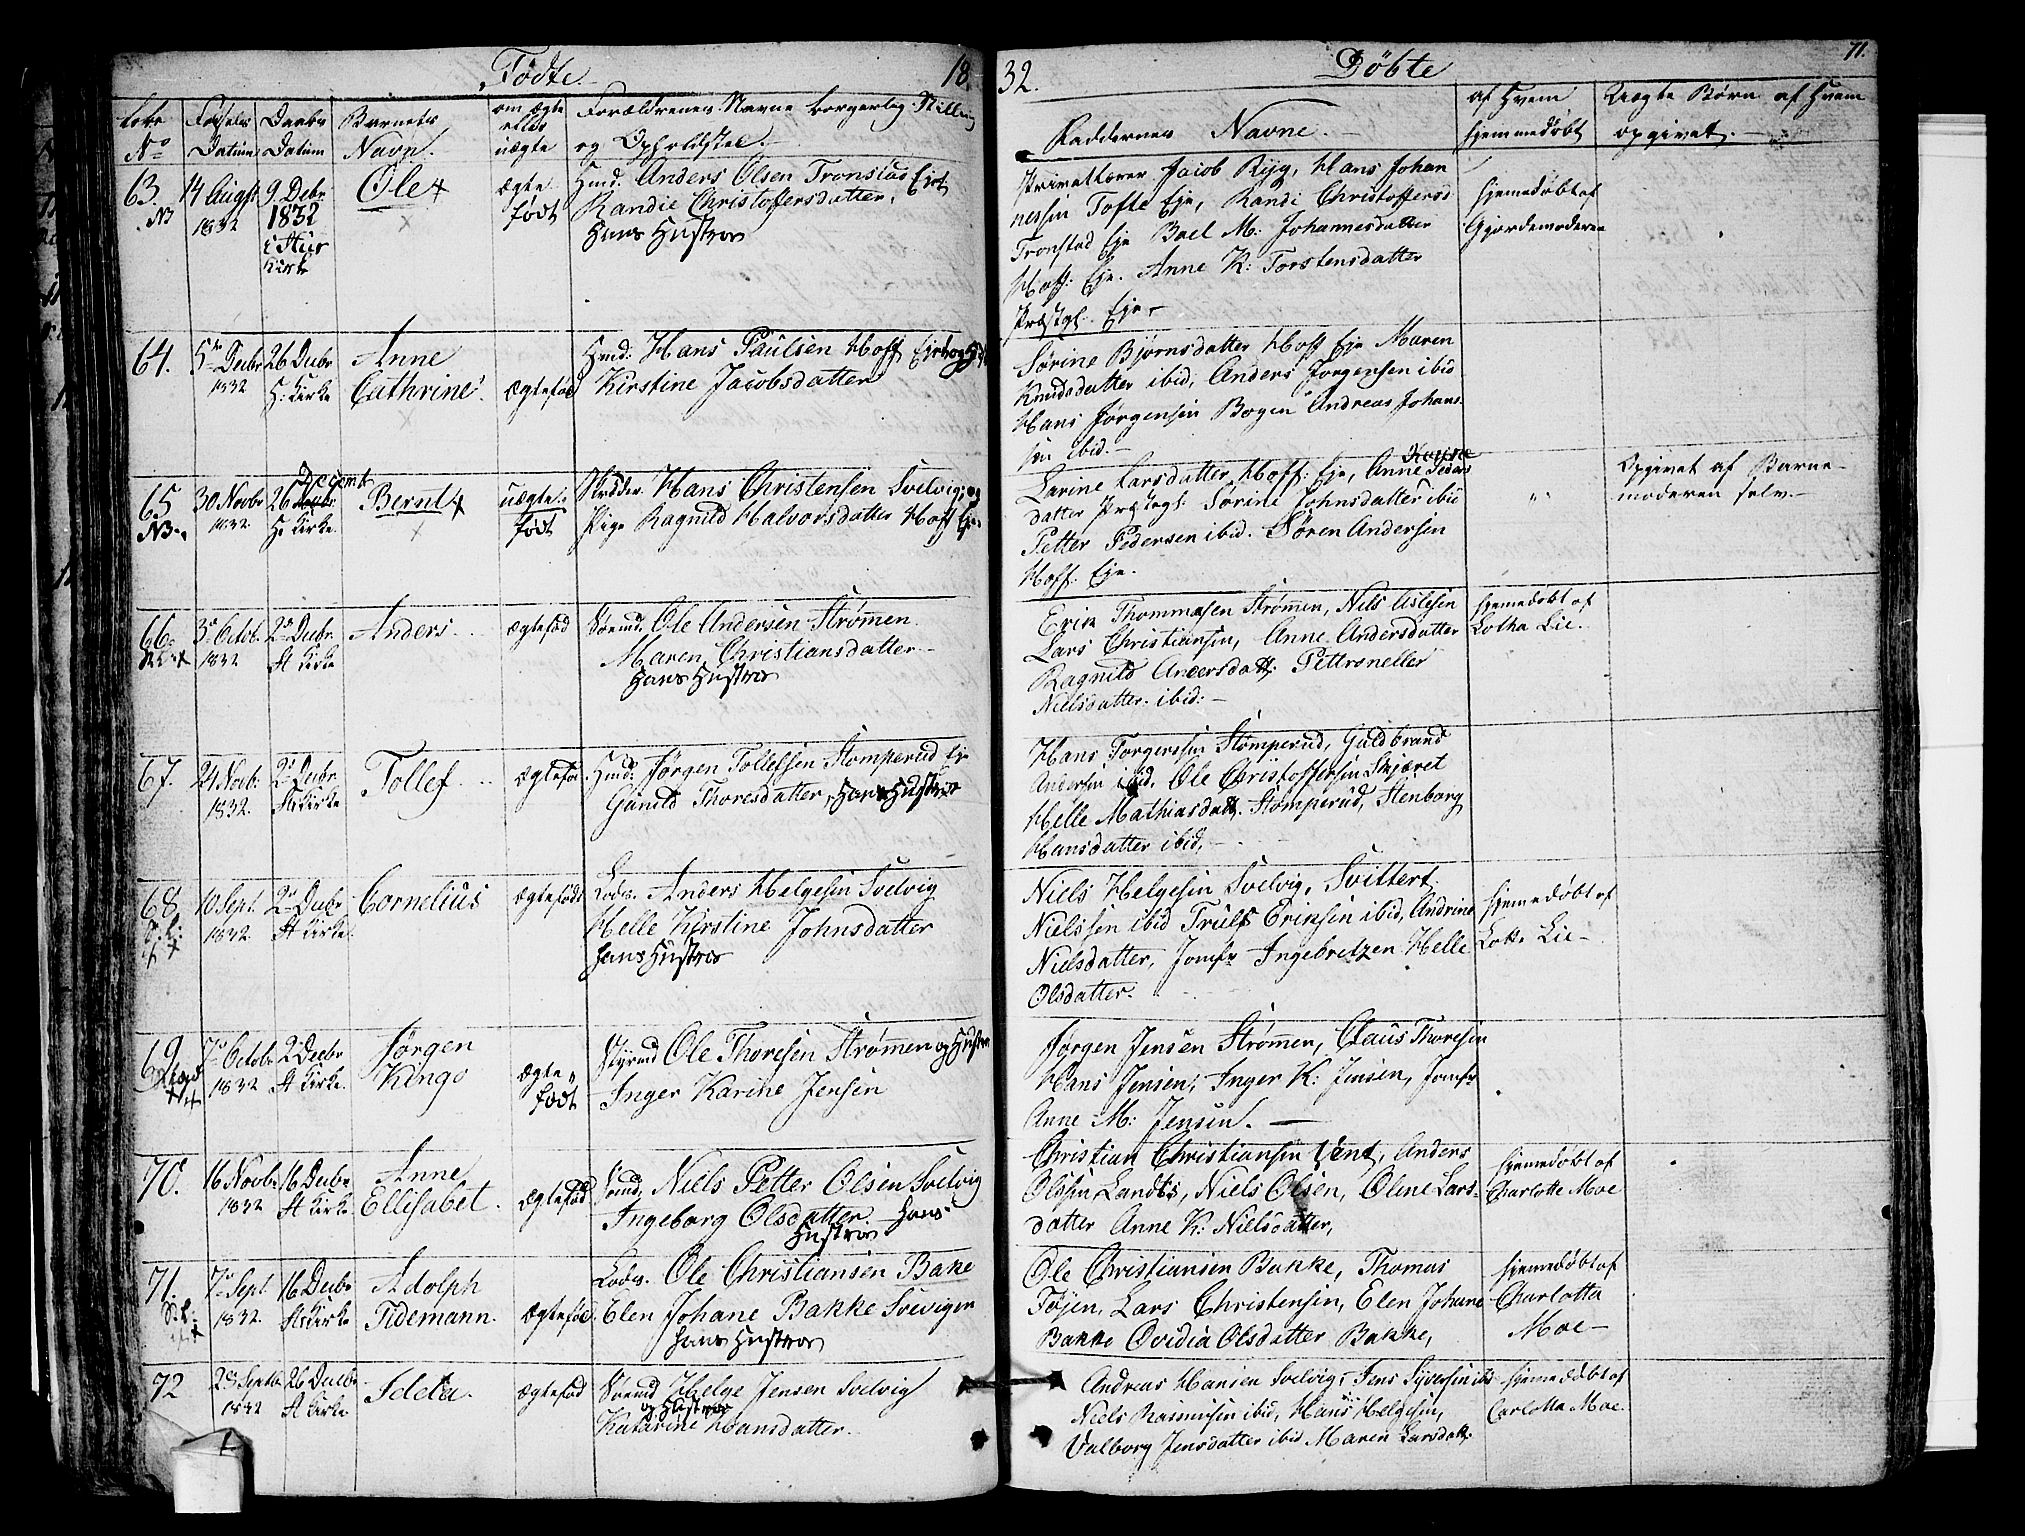 Fødte. 18
32. Døbte 71.
Løbe No
Fødsels Datum
Daabs Datum
Barnets Navn.
om ægte eller uægte
Forældrenes Navne borgerlig Stilling
og Opholdsted.
Faddernes Navne.
af Hvem hjemmedøbt
Uægte Børn af Hvem
opgivet.
63.
14 August 1832
9. Debr. 1832 i Kirke
Ole
ægte født
Hmd. Anders Olsen Tronstad Eje
Randie Christoffersdatter,
Hans Hustroe
Privatlærer Jacob Ryg, Hans Johan
nessen Tofte Eje, Randi Christoffersd
Tronstad Eje Boel M: Johannesdatter
Hoff: Eje. Anne K: Torstensdatter
Præstgl. Eje,
hjemedøbt af
Gjordemoderen
64.
5te Decbr 1832
26 Decbr H: Kirke
Anne
Cathrine.
ægtefød
Hmd: Hans Paulsen Hoff Eje og H
Kirstine Jacobsdatter
Sørine Bjørnsdatter Hoff Eje Maren
Knudsdatter ibid, Anders Jørgensen ibid
Hans Jørgensen Bogen Andreas Johan
sen ibid.
65
30 Novbr 1832.
26 Decemb H: Kirke
Bernt
uægte født
Skræder Hans Christensen Svelvig, og
Pige Ragnild Halvorsdatter Hoff Eje
Larine Larsdatter Hoff: Eje, Anne Peders
datter Præstegl. Sørine Johnsdatter ibid
Petter Pedersen ibid. Søren Andersen
Hoff. Eje.
Opgivet af Barne-
moderen selv.
66.
3 Octob. 1832
2 Decbr. St Kirke
Anders
ægtefød
Søemd. Ole Andersen Strømmen.
Maren Christiansdatter
Hans Hustroe
Erik Thommasen Strømmen, Nils Aslesen
Lars Christiansen, Anne Andersdatter
Ragnild Andersdatt: Pettronelle
Nielsdatter. ibid:
hjemedøbt af
Lotha Lie.
67.
24 Novb. 1832.
2 Decbr. St Kirke
Tollef
ægtefød
Hmd: Jørgen Tollefsen Stomperud Eje
Gunild Thoresdatter, Hans Hustroe
Hans Torgersen Stomperud, Guldbrand
Andersen ibid. Ole Christoffersen Skjæret
Helle Mathiasdatt. Stomperud, Stenborg
Hansdatter ibid,
68
10 Sept. 1832
2 Decbr St Kirke.
Cornelius
ægtefødt
Lods. Anders Helgesen Svelvig
Helle Kirstine Johnsdatter
Hans Hustroe
Niels Helgesen Svelvig, Svittert
Nielsen ibid Truls Eriksen ibid, Andrine
Nielsdatter, Jomfr Ingebretzen Helle
Olsdatter.
hjemedøbt af
Lotte Lie
69
7 Octobr 1832
2 Decbr St Kirke.
Jørgen
Kingo
ægte født
Styrmd Ole Thoresen Strømmen og Hustroe
Inger Karine Jensen
Jørgen Jensen Strømmen, Claus Thoresen
Hans Jensen, Inger K: Jensen, Jomfr
Anne M: Jensen.
70.
16 Novbr 1832
16 Decbr St Kirke
Anne
Ellisabet.
ægtefød
Søemd. Niels Petter Olsen Svelvig
Ingeborg Olsdatter. Hans
Hustroe
Christian Christiansen Vent, Anders
Olsen Landbs, Niels Olsen, Oline Lars-
datter Anne K: Nielsdatter,
hjemedøbt af
Charlotte Moe
71.
7 Sept 1832.
16 Decbr St Kirke
Adolph
Tidemann.
ægtefød
Lods. Ole Christiansen Bake
Elen Johane Bakke Svelvigen
Hans Hustroe
Ole Christiansen Bakke, Thomas
Tøjen, Lars Christensen, Elen Johane
Bakke Ovidia Olsdatter Bakke,
hjemedøbt af
Charlotta
Moe
72
23 Septbr 1832
26 Decbr St Kirke
Idda.
ægtefød
Søemd Helge Jensen Svelvig
og Hustroe
Katarine Hansdatter.
Andreas Hansen Svelvig, Jens Syversen ibd
Niels Rasmusen ibid, Hans Helgesen,
Valborg Jensdatter ibid Maren Larsdatt.
hjemedøbt af
Carlotta Moe.